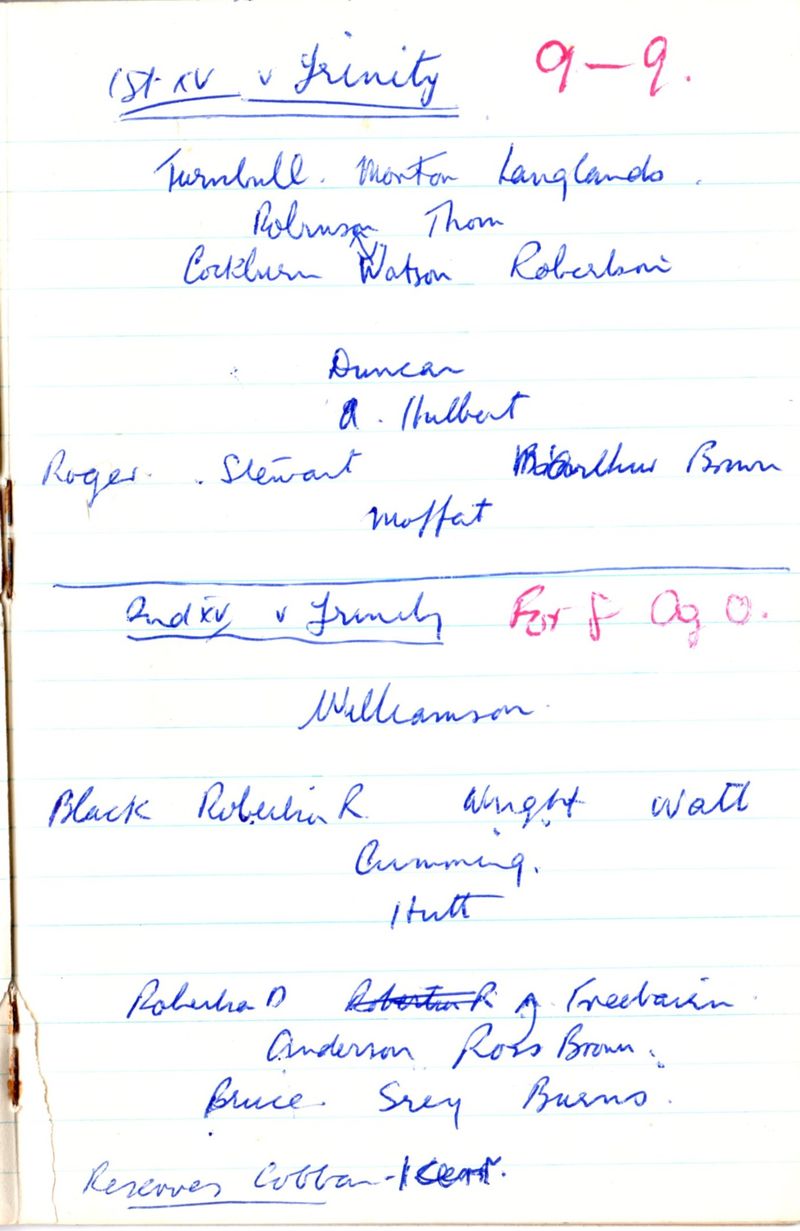 1st XV v Trinity 9 - 9.
Turnbull. Morton Langlands.
Robinson Thom
Cockburn Watson Robertson
Duncan
A. Hulbert
Roger. Stewart McArthur Brown
Moffat
2nd XV v Trinity For 8 Ag 0.
Williamson.
Black Robertson R. Wright Watt
Cumming.
Hutt
Robertson D Robertson R Freebairn
Anderson Ross Brown.
Bruce Grey Burns.
Reserves Cobban - Kerr.